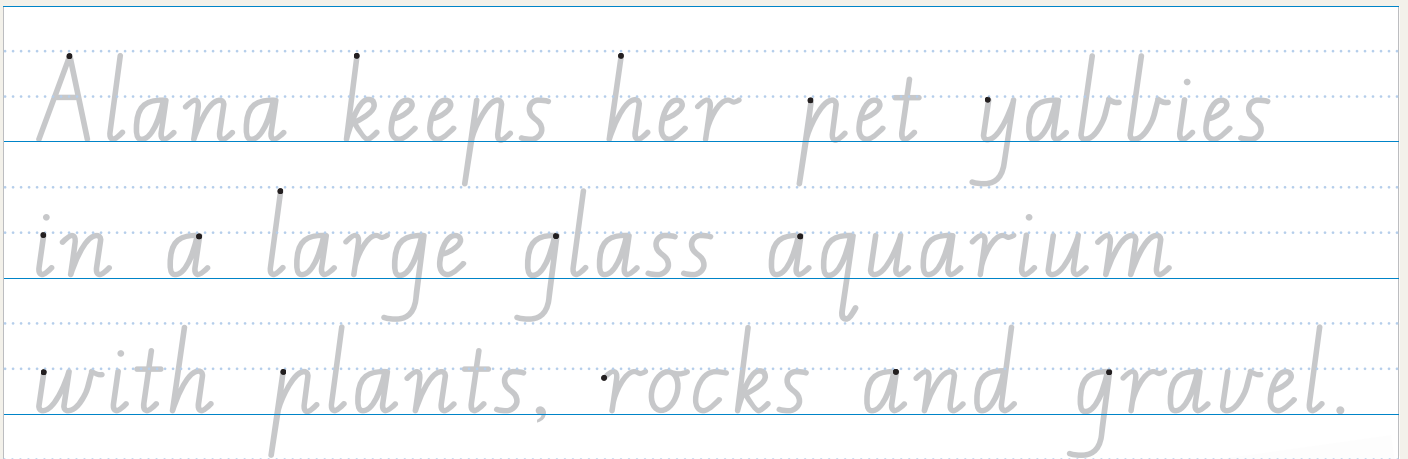 Alana keeps her pet yabbies
in a large glass aquarium
with plants, rocks and gravel.